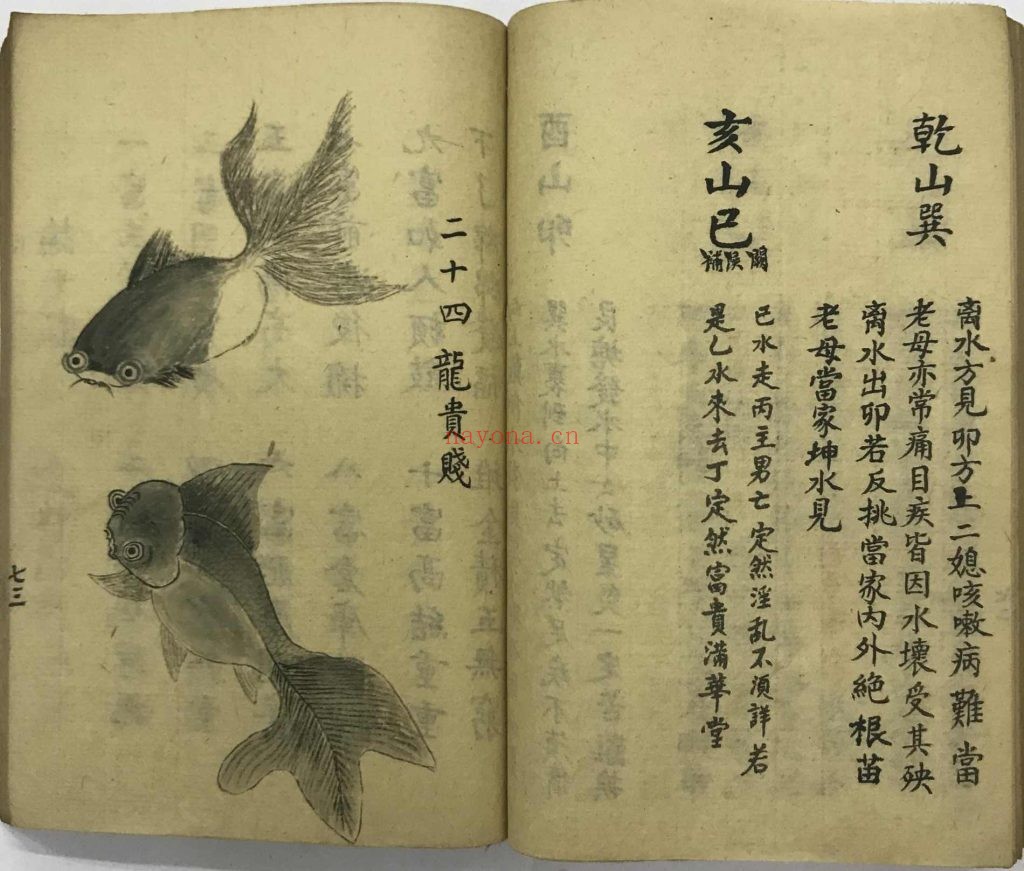 乾山巽
离水方見卯方上二媳咳嗽病難當
老母亦常痛目疾皆因水壞受其殃
离水出卯若反挑當家內外絕根苗
老母當家坤水見
亥山巳
闕俟補
巳水走丙主男亡定然淫乱不須詳若
是乙水來去丁定然富貴满華堂
二十四龍貴賤
七三
nayona.cn